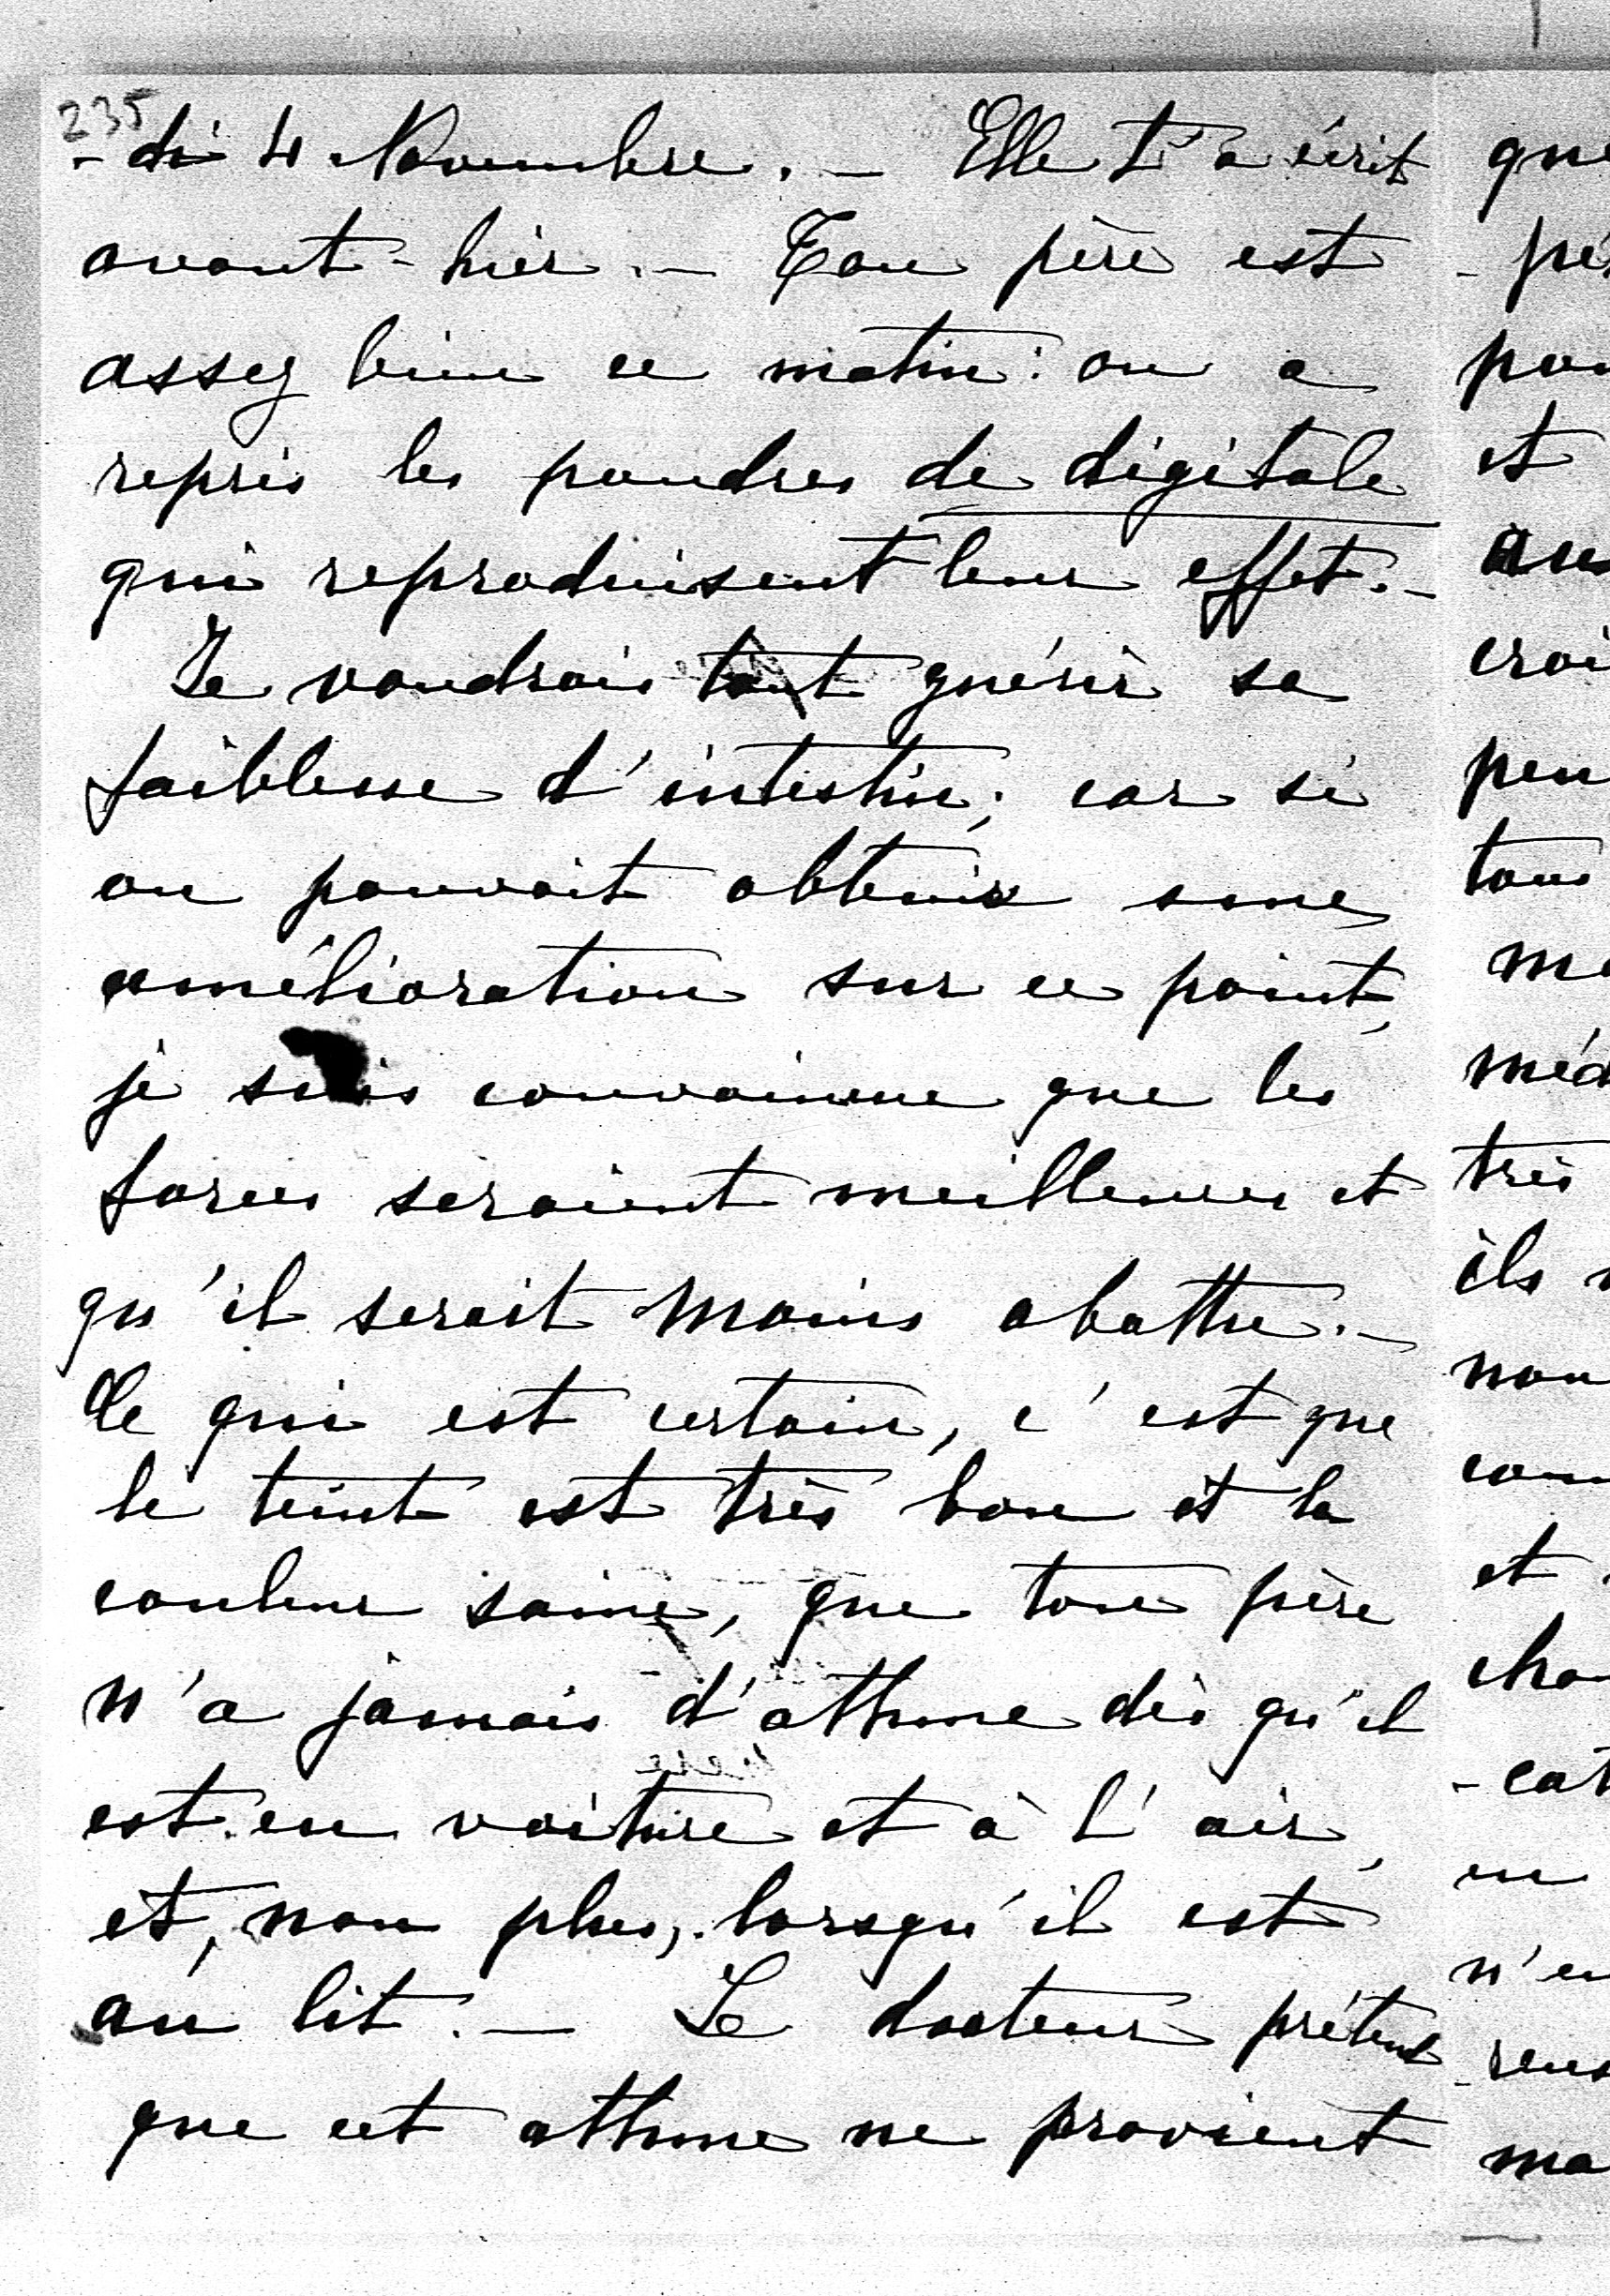 235
- di 4 Novembre. — Elle t'a écrit
avant-hier. — Ton père est
assez bien ce matin : on a
repris les poudres de digitale
qui reproduisent leur effet. —
Je voudrais tant guérir sa
faiblesse d'intestin; car si
on pouvait obtenir une
amélioration sur ce point,
je suis convaincue que les
forces seraient meilleures et
qu'il serait moins abattu. —
Ce qui est certain, c'est que
le teint est très bon et la
couleur saine, que ton père
n'a jamais d'athme dès qu'il
est en voiture et à l'air,
et, non plus, lorsqu'il est
au lit. — Le docteur prétend
que cet athme ne provient
que
- pé
et
croi
peu
méd
très
ils
et
n'en